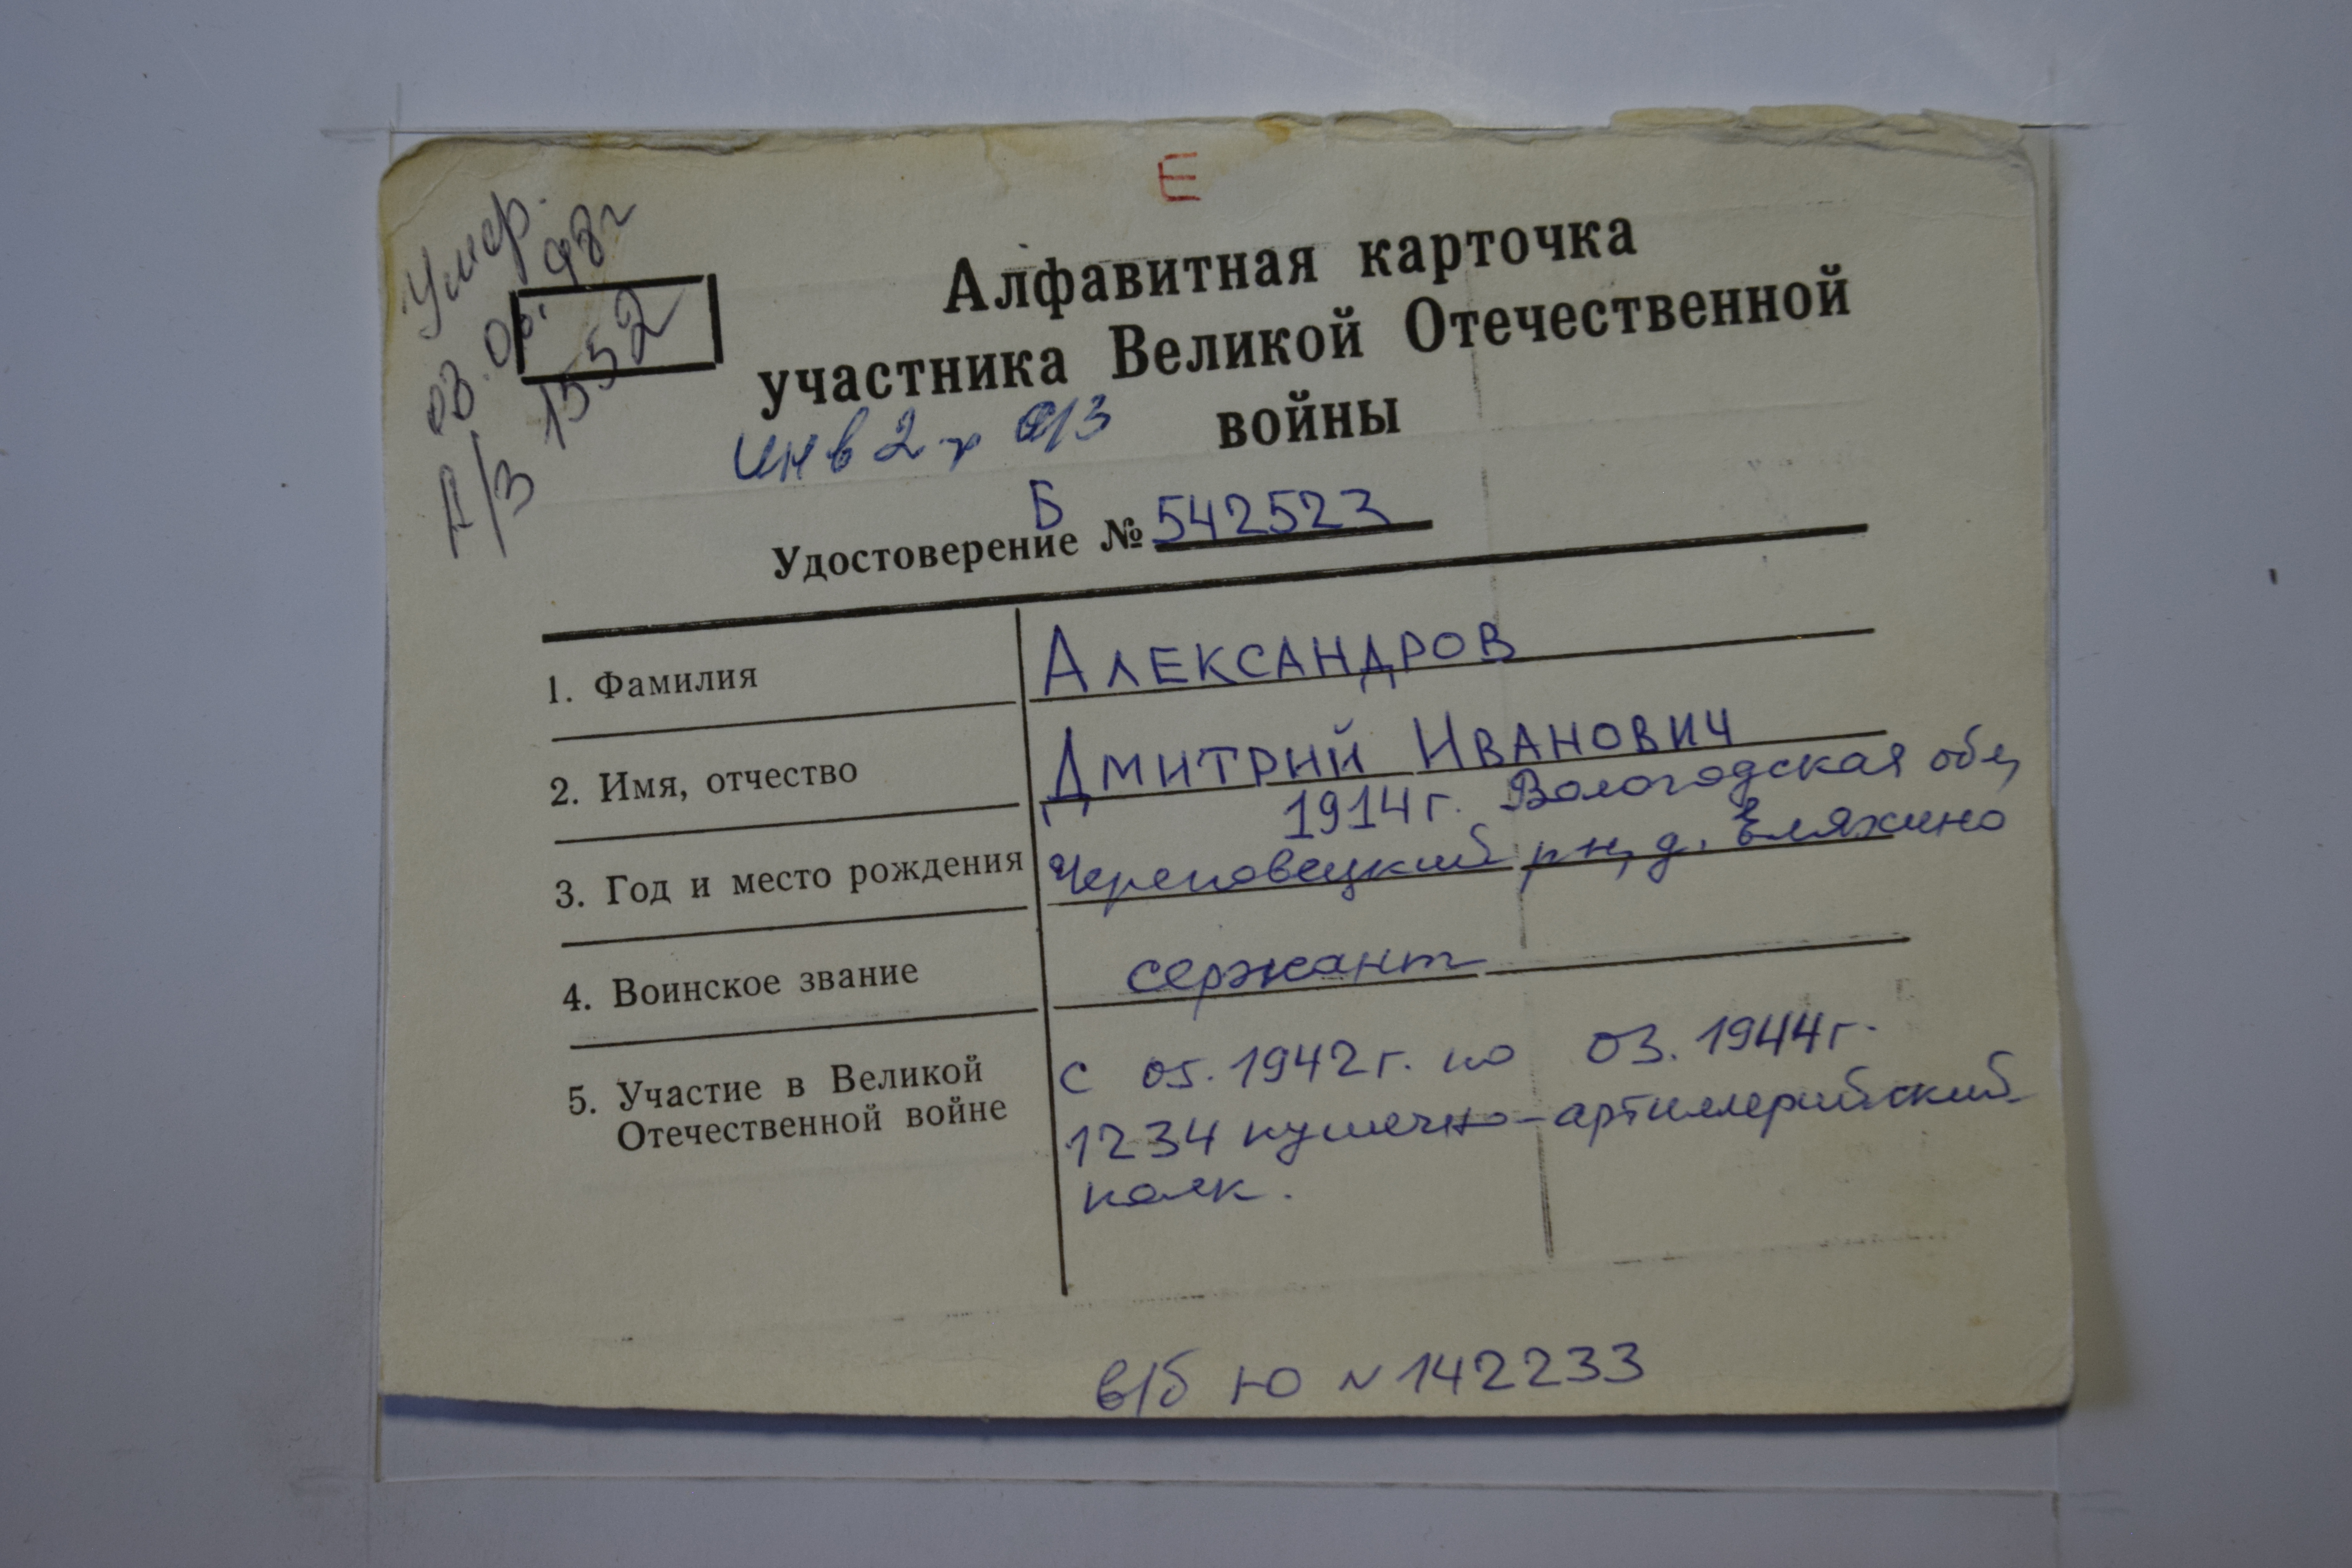 Е
Умер.
03. 98г
А/З 1552
Алфавитная карточка
участника Великой Отечественной
войны
инв 2 гр
Б
Удостоверение № 542523
1. Фамилия АЛЕКСАНДРОВ
2. Имя, отчество ДМИТРИЙ ИВАНОВИЧ
1914г. Вологодская обл,
3. Год и место рождения Череповецкий рн, д.
4. Воинское звание сержант
5. Участие в Великой с 05.1942г. по 03.1944г.
Отечественной войне 1234 пушечно-артиллерийский
полк.
в/б Ю № 142233